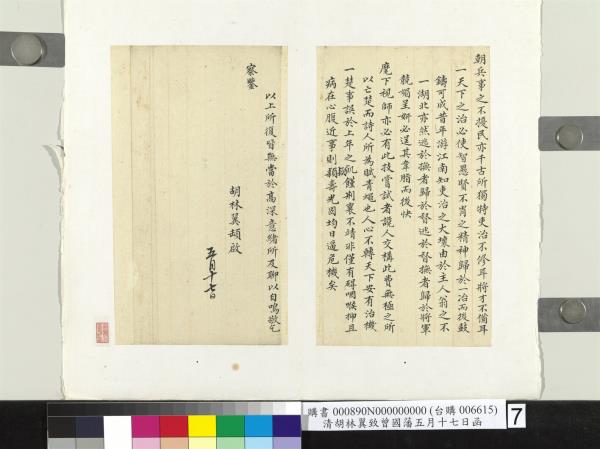 朝兵事之不擾民亦千古所獨特吏治不修耳將才不備耳
一天下之治必使智愚賢不肖之精神歸於一冶而後鼓
鑄可成昔年游江南知吏治之大壞由於主人翁之不
一湖北亦然逃於撫者歸於督逃於督撫者歸於將軍
競媚呈妍必逞其韋脂而後快
麾下視師亦必有此技嘗試者讒人交構此費無極之所
以亡楚而詩人所為賦青蠅也人心不轉天下安有治機
一楚事誤於上年之飢饉荊襄不靖非僅有礙咽喉抑且
病在心腹近事則潁壽光固均日逼危機矣
以上所復皆無當於高深意緒所及聊以自鳴敬乞
察鑒
胡林翼頓啟
五月十七日
購書 000890N000000000 (台購 006615)
清胡林翼致曾國藩五月十七日函
7